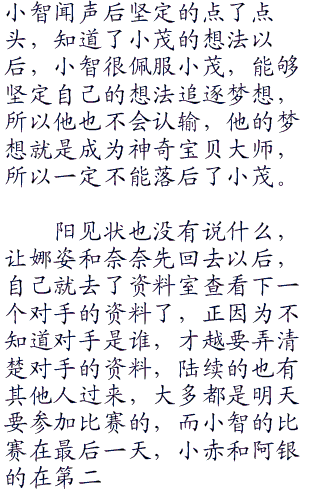 小智闻声后坚定的点了点
头，知道了小茂的想法以
后，小智很佩服小茂，能够
坚定自己的想法追逐梦想，
所以他也不会认输，他的梦
想就是成为神奇宝贝大师，
所以一定不能落后了小茂。
阳见状也没有说什么，
让娜姿和奈奈先回去以后，
自己就去了资料室查看下一
个对手的资料了，正因为不
知道对手是谁，才越要弄清
楚对手的资料，陆续的也有
其他人过来，大多都是明天
要参加比赛的，而小智的比
赛在最后一天，小赤和阿银
的在第二